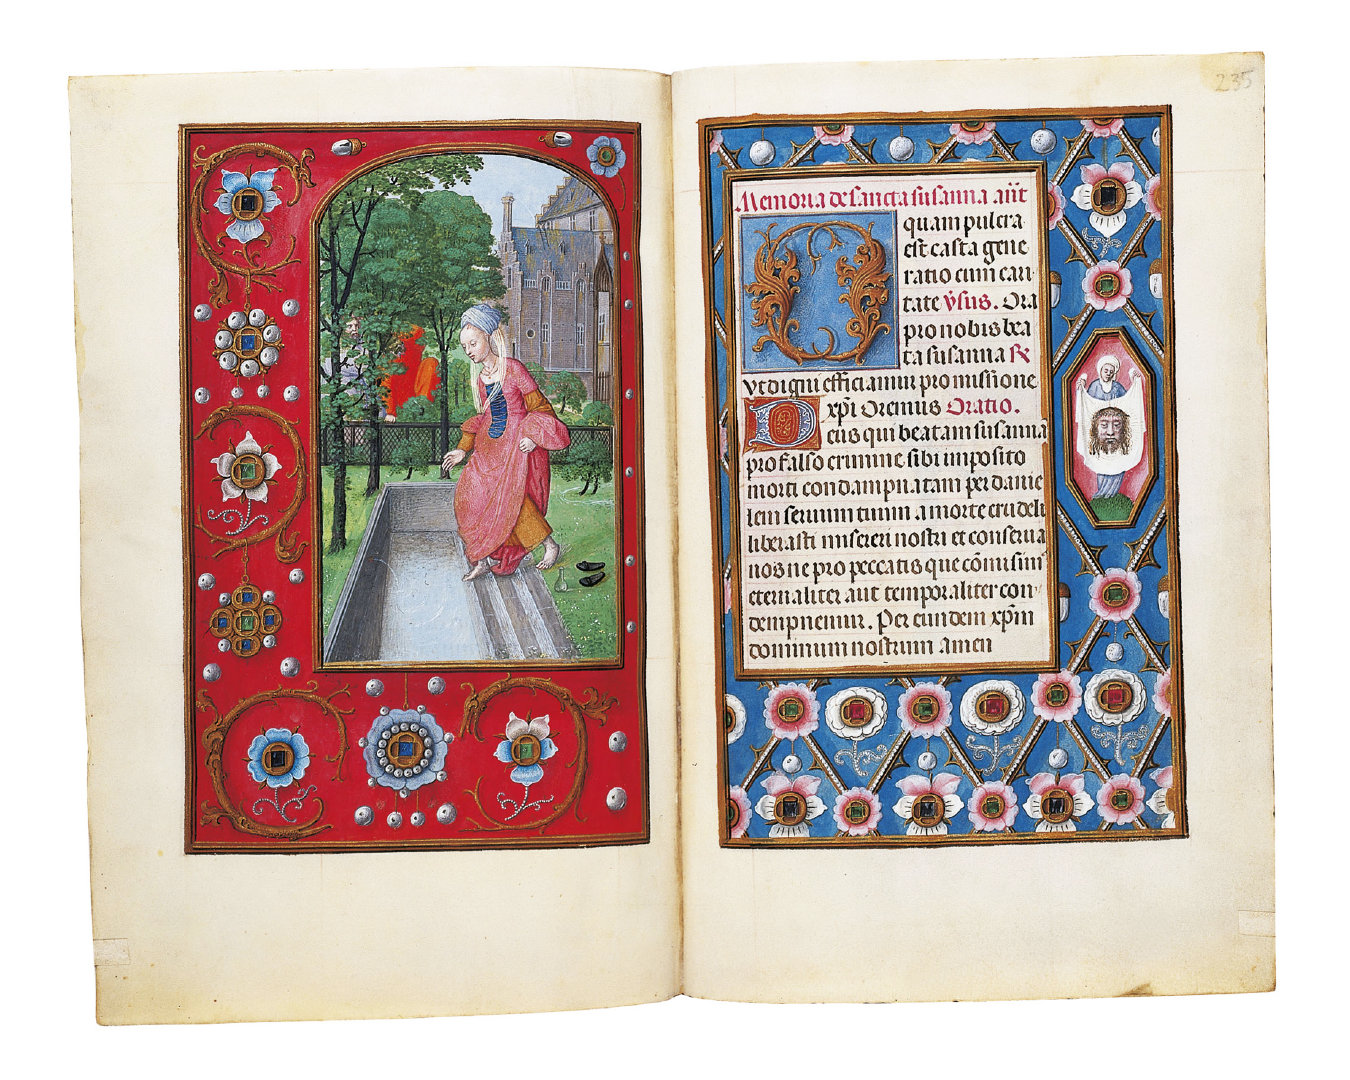 235
Memoria de sancta susanna añt
O quam pulcra
est casta gene
ratio cum cari
tate v̉sus. Ora
pro nobis bea
ta susanna ℞
vt digni efficiamur promissione
xp̄i Oremus Oratio.
Deus qui beatam susanna
pro falso crimine sibi imposito
morti condampnatam per danie
lem seruum tuum a morte crudeli
liberasti miserere nostri et conserua
nos ne pro peccatis que cōmisim9
eternaliter aut temporaliter con
dempnemur. Per eundem xp̄m
dominum nostrum amen